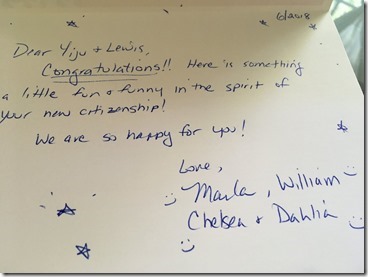 6/20/18
Dear Yiju & Lewis,
Congratulations!! Here is something
a little fun & funny in the spirit of
your new citizenship!
We are so happy for you!
Love,
Marla, William
Chelsea & Dahlia